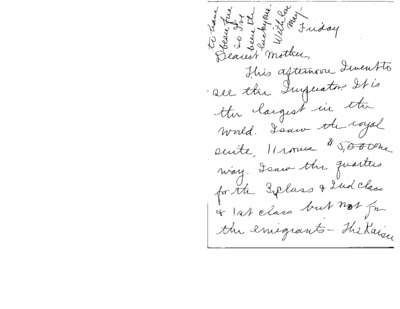 to have
beau fine
so I've
been the
lucky one.
With love
May-
Friday
Dearest Mother,
This afternoon I went to
see the Imperator. It is
the largest in the
world. I saw the royal
suite, 11 rooms $5,000 one
way. I saw the quarters
for the 3 class & 2nd class
& 1st class but not for
the emigrants - The Kaiser